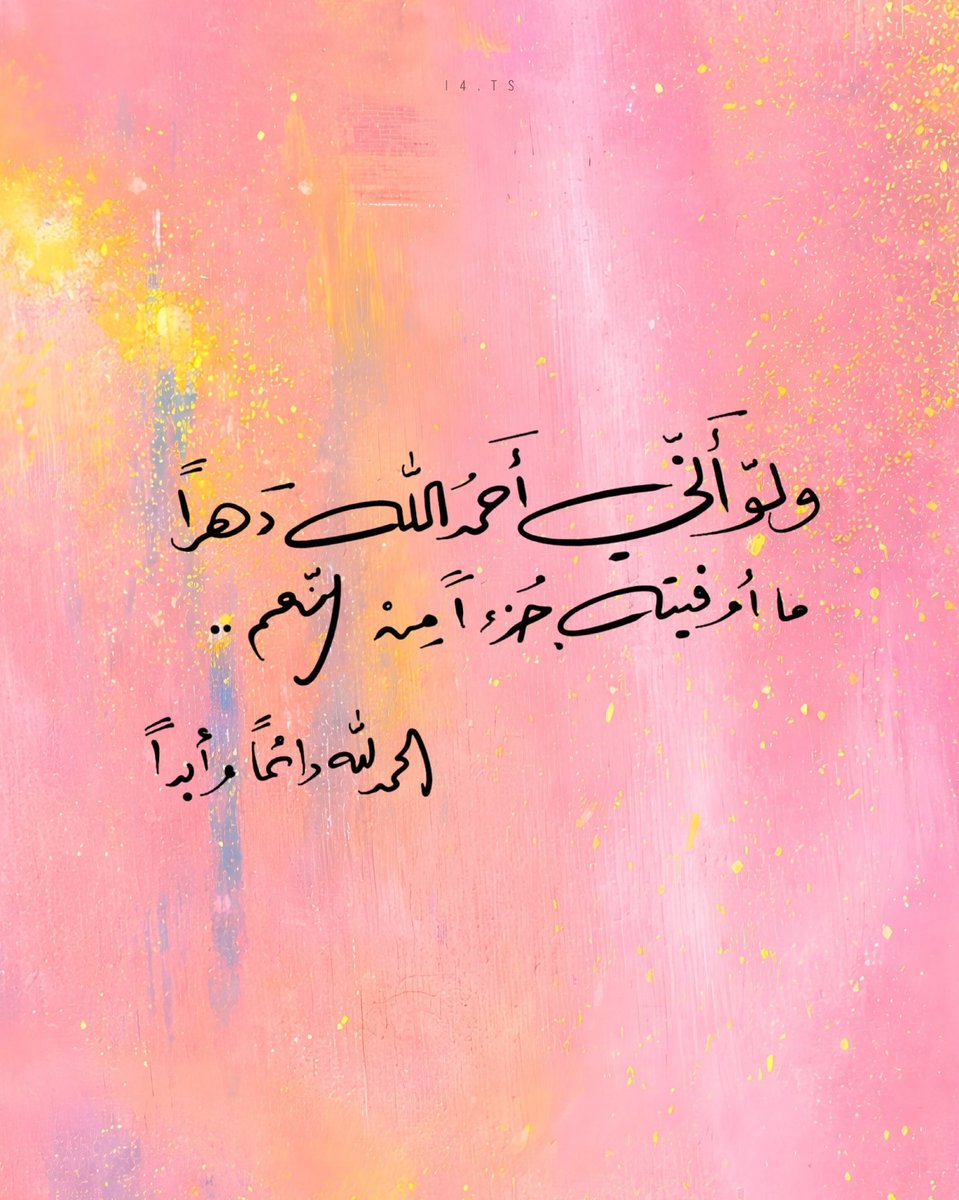 14.TS
ولوّ أَنّي أَحمدُ اللّٰه دَهراً
ما أوفيته جُزءاً مِنْ النّعم ..
الحمدلله دائماً وأبداً